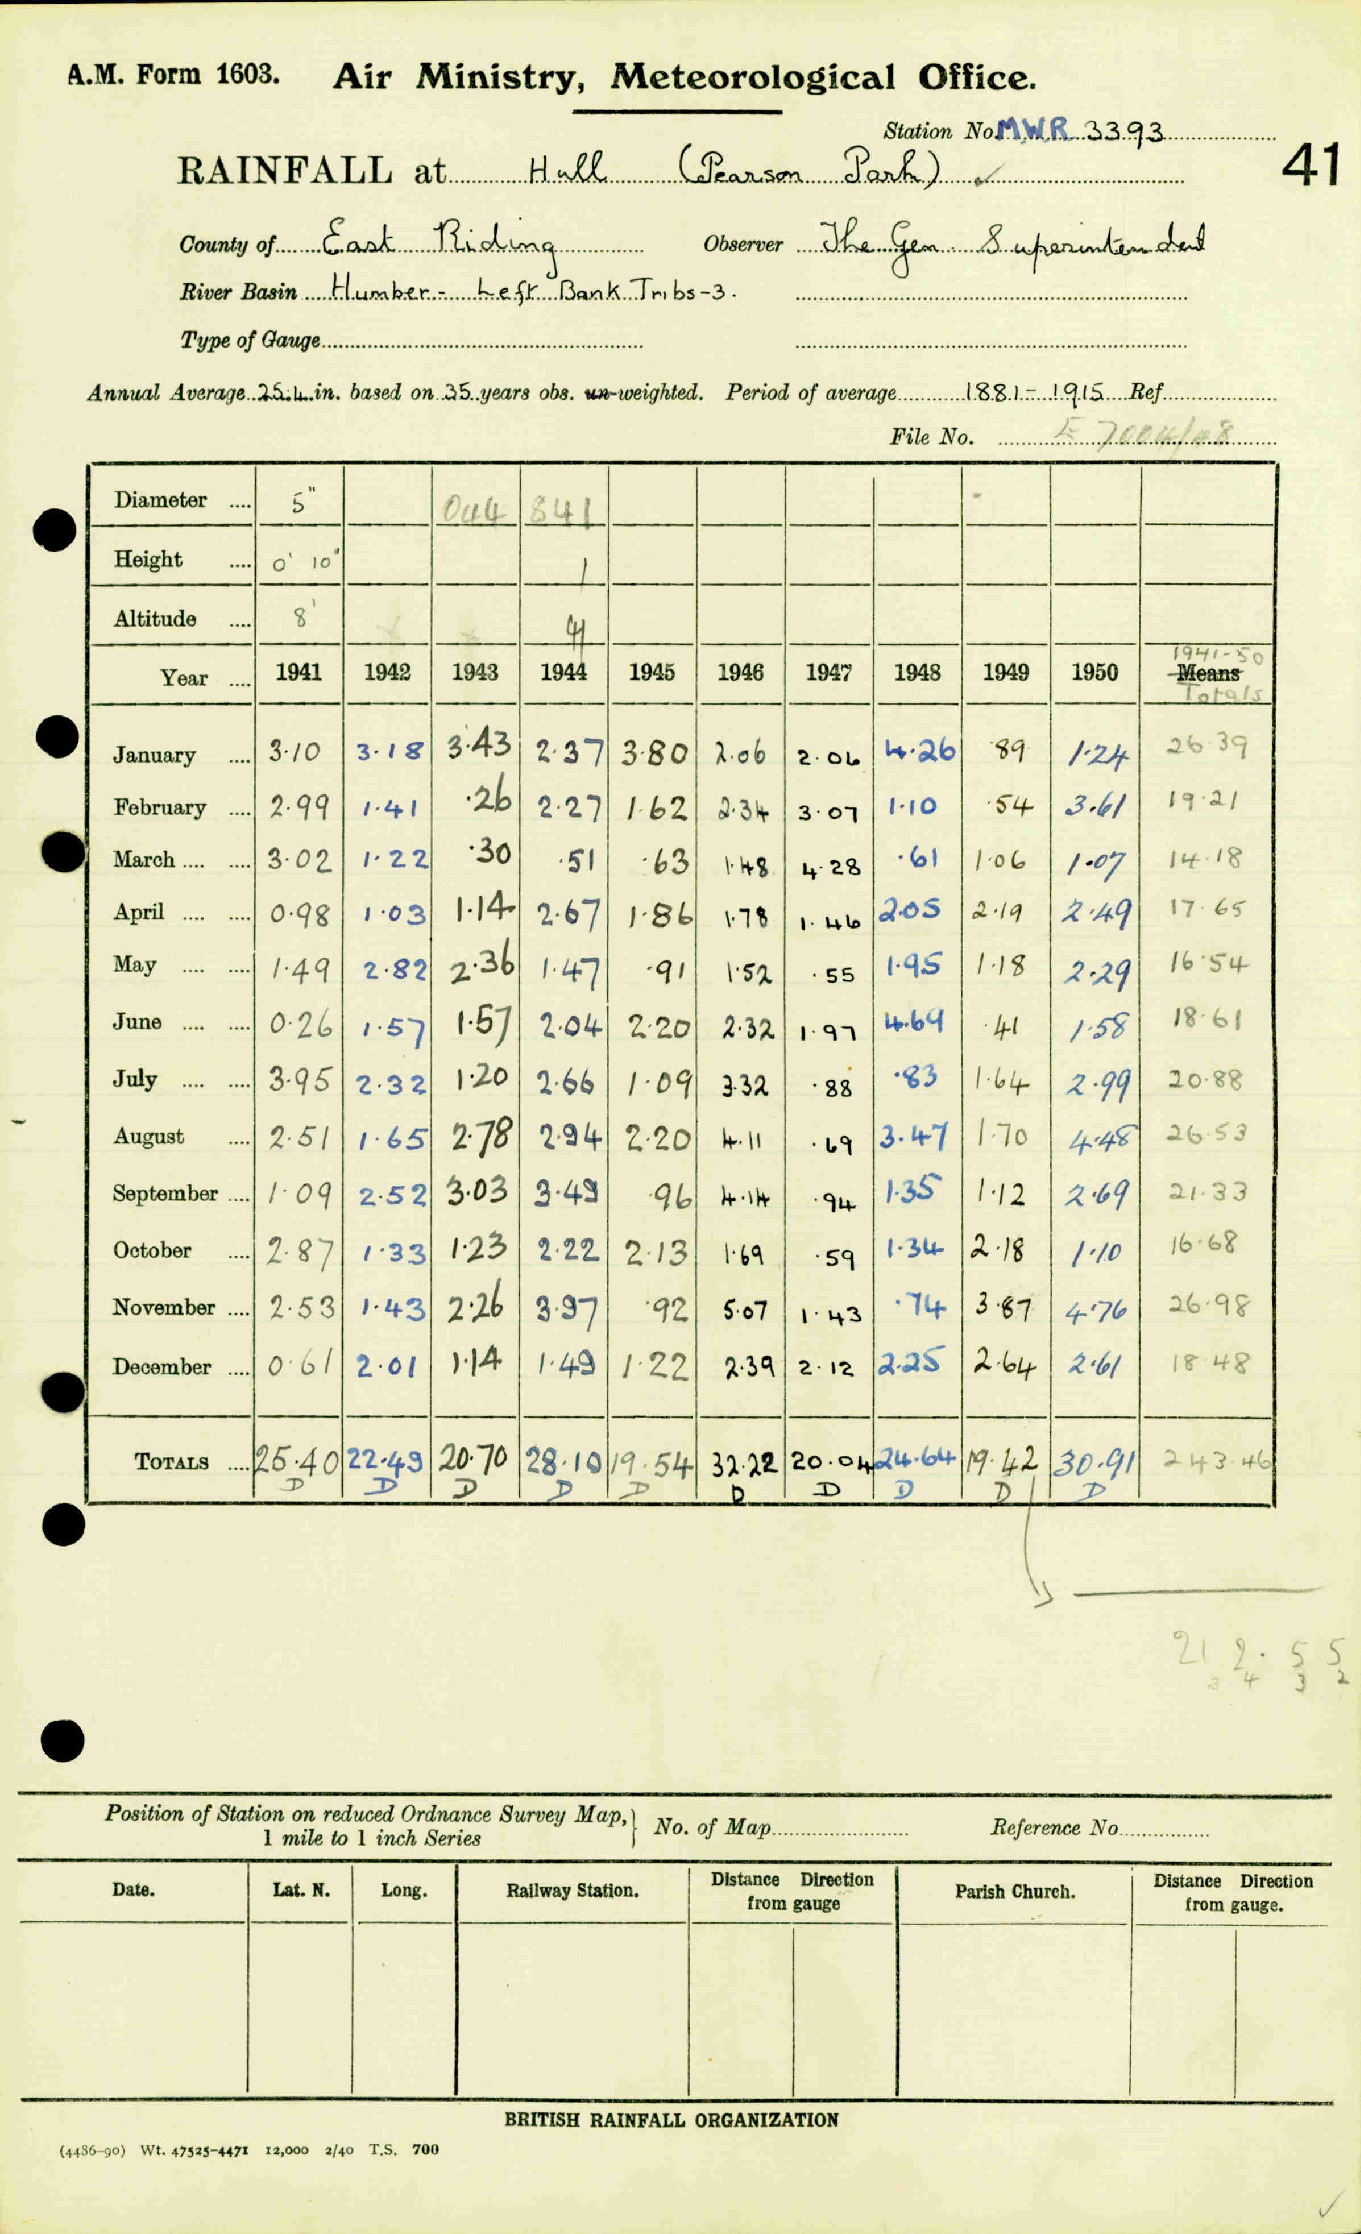 A.M. Form 1603. Air Ministry, Meteorological Office.
Station No. MWR 3393
41
RAINFALL at Hull (Pearson Park) ✓
County of East Riding Observer The Gen. Superintendent
River Basin Humber - Left Bank Tribs-3.
Type of Gauge
Annual Average 25.4 in. based on 35 years obs. un-weighted. Period of average 1881-1915 Ref.
File No.
Diameter .... 5" 044 841
Height .... 0' 10" 1
Altitude .... 8'
1941-50
Year .... 1941 1942 1943 1944 1945 1946 1947 1948 1949 1950 Means
Totals
January .... 3.10 3.18 3.43 2.37 3.80 2.06 2.06 4.26 .89 1.24 26.39
February .... 2.99 1.41 .26 2.27 1.62 2.34 3.07 1.10 .54 3.61 19.21
March .... .... 3.02 1.22 .30 .51 .63 1.48 4.28 .61 1.06 1.07 14.18
April .... .... 0.98 1.03 1.14 2.67 1.86 1.78 1.46 2.05 2.19 2.49 17.65
May .... .... 1.49 2.82 2.36 1.47 .91 1.52 .55 1.95 1.18 2.29 16.54
June .... .... 0.26 1.57 1.57 2.04 2.20 2.32 1.97 4.69 .41 1.58 18.61
July .... .... 3.95 2.32 1.20 2.66 1.09 3.32 .88 .83 1.64 2.99 20.88
August .... 2.51 1.65 2.78 2.94 2.20 4.11 .69 3.47 1.70 4.48 26.53
September .... 1.09 2.52 3.03 3.49 .96 4.14 .94 1.35 1.12 2.69 21.33
October .... 2.87 1.33 1.23 2.22 2.13 1.69 .59 1.34 2.18 1.10 16.68
November .... 2.53 1.43 2.26 3.97 .92 5.07 1.43 .74 3.87 4.76 26.98
December .... 0.61 2.01 1.14 1.49 1.22 2.39 2.12 2.25 2.64 2.61 18.48
TOTALS .... 25.40 22.49 20.70 28.10 19.54 32.22 20.04 24.64 19.42 30.91 243.46
D D D D D D D D D D
21 2. 5 5
4 3 2
Position of Station on reduced Ordnance Survey Map, No. of Map Reference No
1 mile to 1 inch Series
Date. Lat. N. Long. Railway Station. Distance Direction from gauge Parish Church. Distance Direction from gauge.
BRITISH RAINFALL ORGANIZATION
(4486-90) Wt. 47525-4471 12,000 2/40 T.S. 700
✓